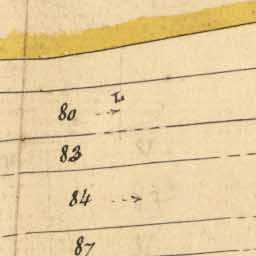 80
83
84
87